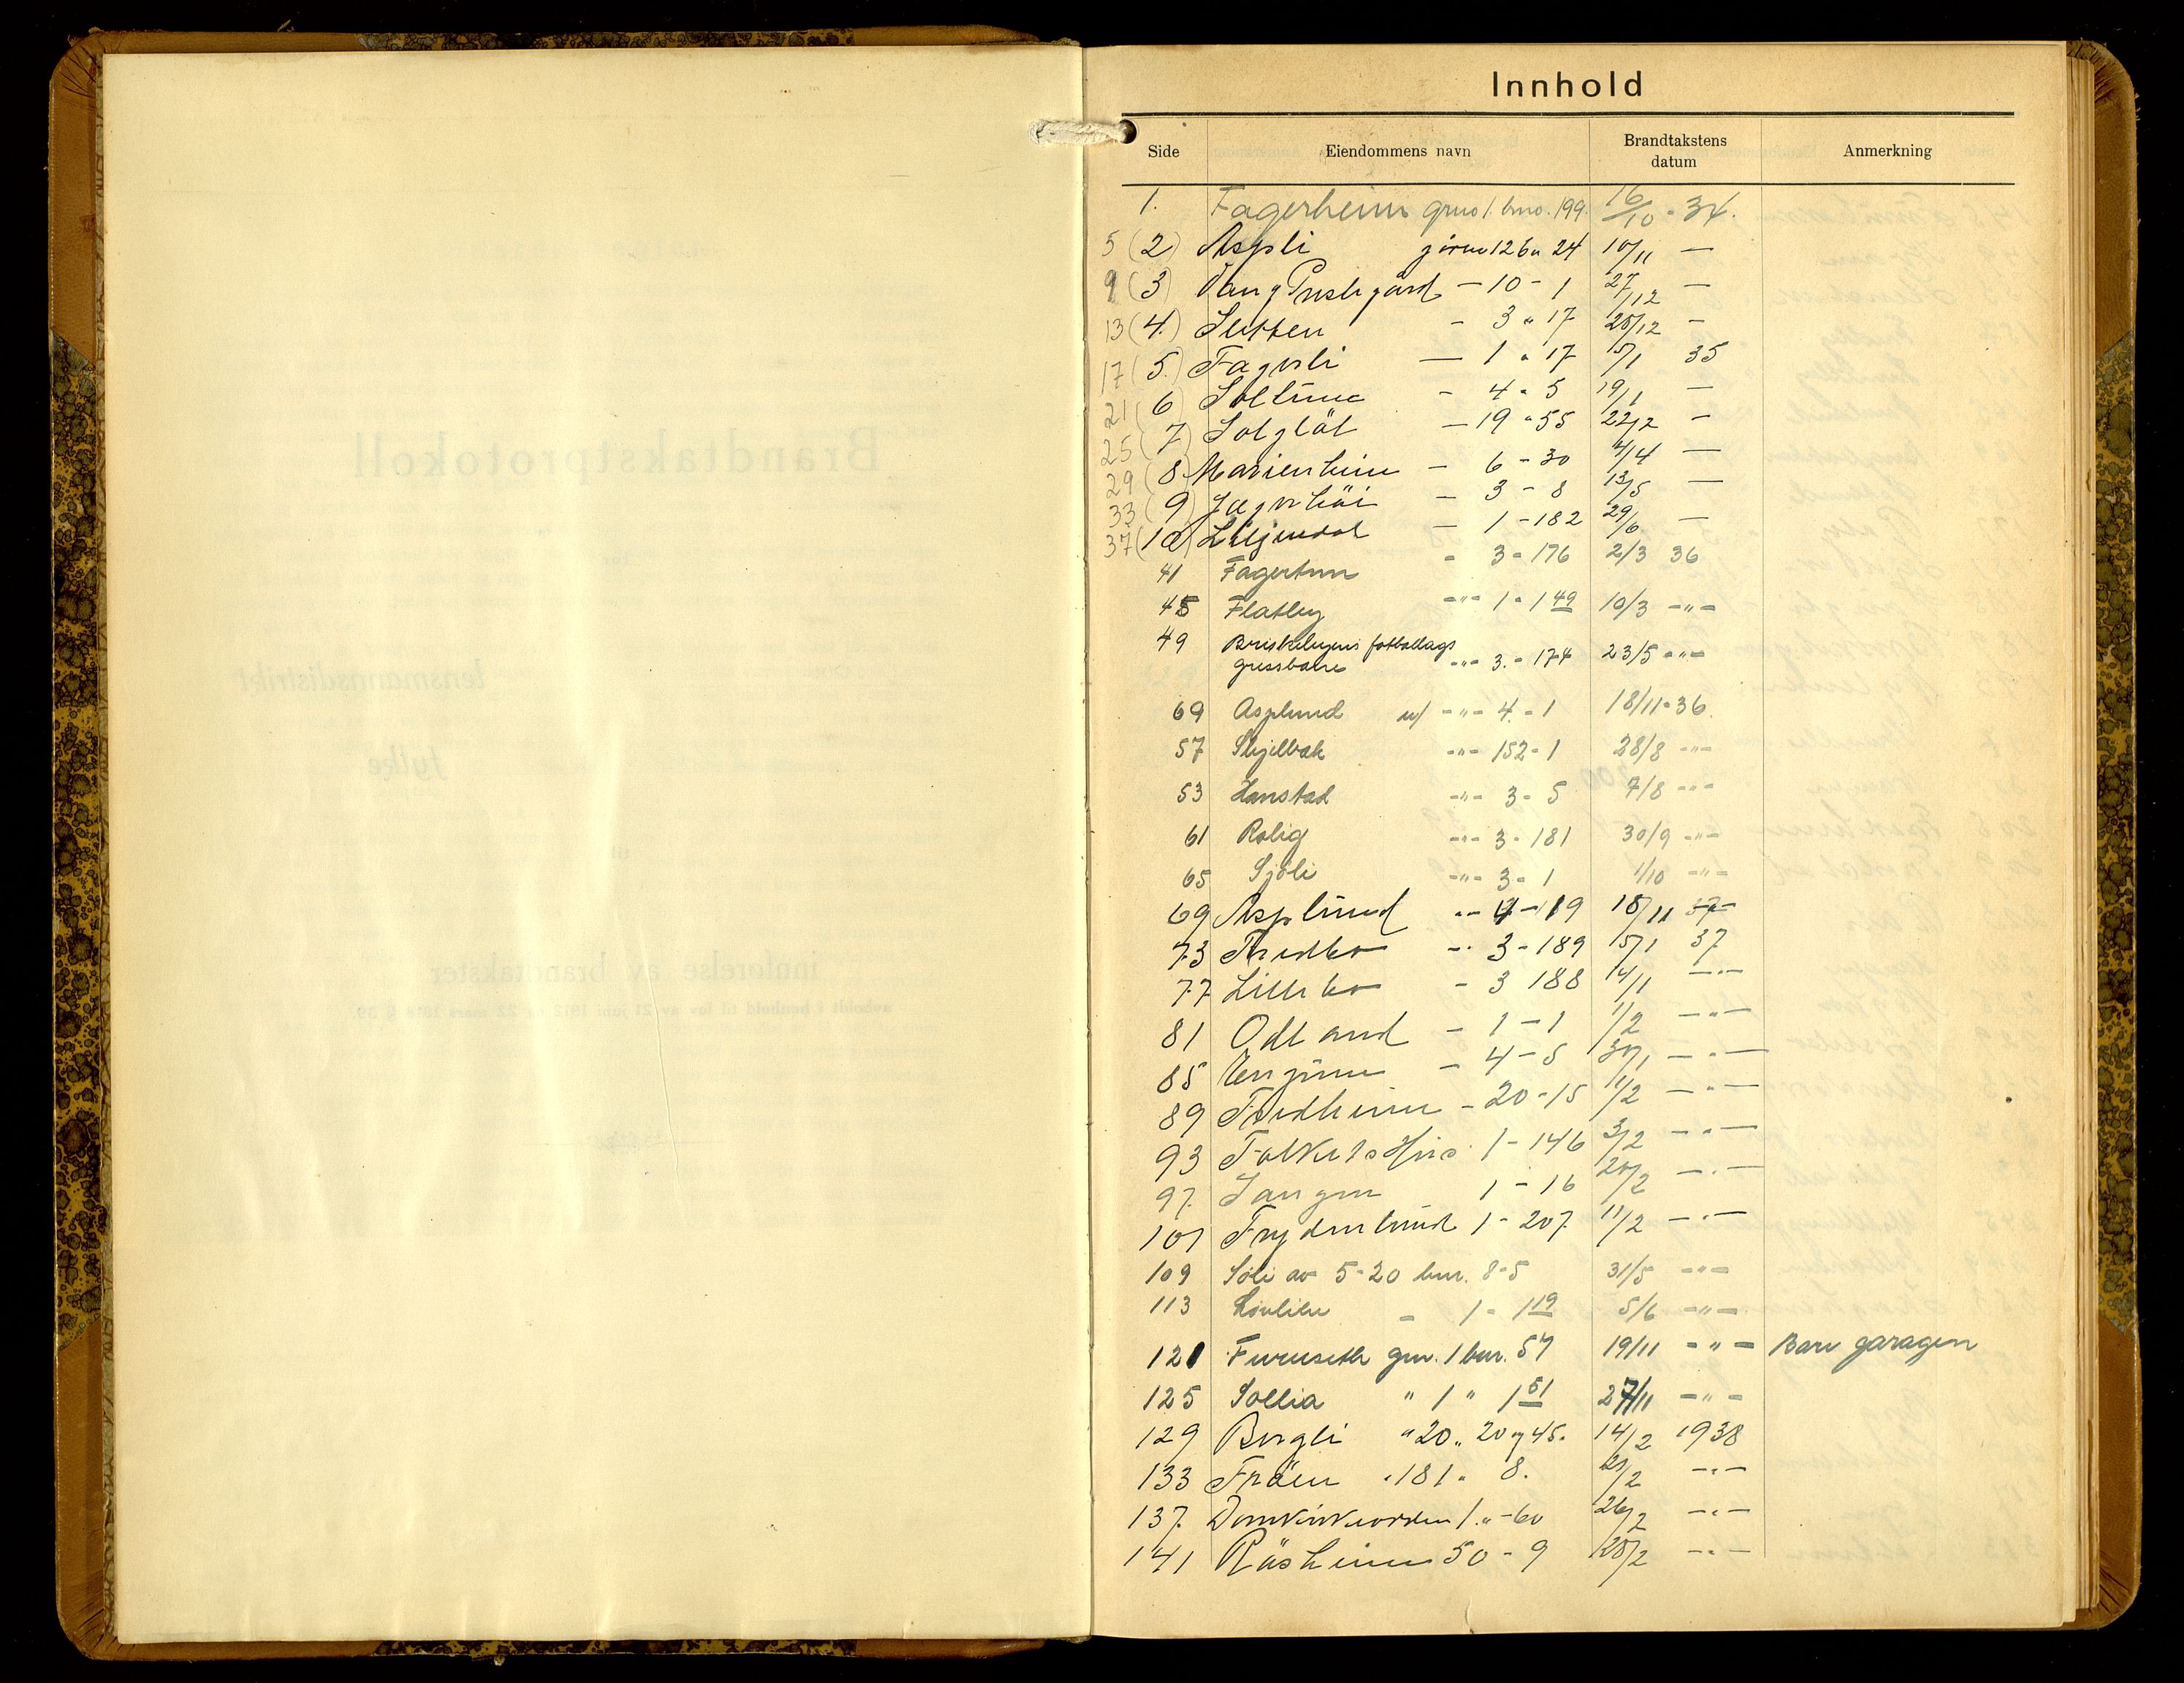 Innhold
Side Eiendommens navn Brandtakstens datum Anmerkning
1. Fagerheim grno 1. bno. 199. 16/10 - 34.
5 (2) Aspli 12 bn 24 10/11 —
9 (3) Vang Prestegård — 10 - 1 27/12 —
13 (4.) Sletten - 3 " 17 28/12 -
17 (5.) Fagerli — 1 " 17 15/1 35
21 (6) Soltun - 4 " 5 19/1 —
25 (7) Solglöt — 19 " 55 22/2 -
29 (8 Marienheim - 6 - 30 4/4 —
33 (9) — 3 - 8 13/5 —
37 (10) Liljendal — 1 - 182 29/6 —
41 Fagertun - 3 - 176 2/3 36
45 Flatby -"- 1 - 149 10/3 -"-
49 Briskebyens fotballags
gressbane -"- 3. - 174 23/5 -"-
69 Asplund u/ -"- 4. - 1 18/11 - 36.
57 Skjelbak -"- 152 - 1 28/8 -"-
53 Hanstad -"- 3 - 5 7/8 -"-
61 Rolig -"- 3 - 181 30/9 -"-
65 Sjöli -"- 3 - 1 1/10 -"-
69 Asplund "- 4 - 119 18/11 37
73 Fredbo -" 3 - 189 15/1 37
77 Lillebo - 3 188 14/1 —"—
81 Odland - 1 - 1 1/2 —"—
85 - 4 - 5 30/1 —"—
89 Fredheim - 20 - 15 11/2 —"—
93 Folkets Hus 1 - 146 3/2 —"—
97. 1 - 16 20/2 —"—
101 Frydenlund 1 - 207. 11/2 —"—
109 Söli av 5 - 20 bnr. 8 - 5 31/5 -"-
113 - 1 - 119 5/6 -"-
121 Furuseth gnr. 1 bnr. 57 19/11 -"- Bare garagen
125 Sollia " 1 " 151 27/11 -"-
129 Bergli " 20 " 20 og 45. 14/2 1938
133 Fröen " 181 " 8. 21/2 —"—
137. Domkirkeodden 1. " - 60 26/2 —"—
141 Råsheim 50 - 9 28/2 —"—